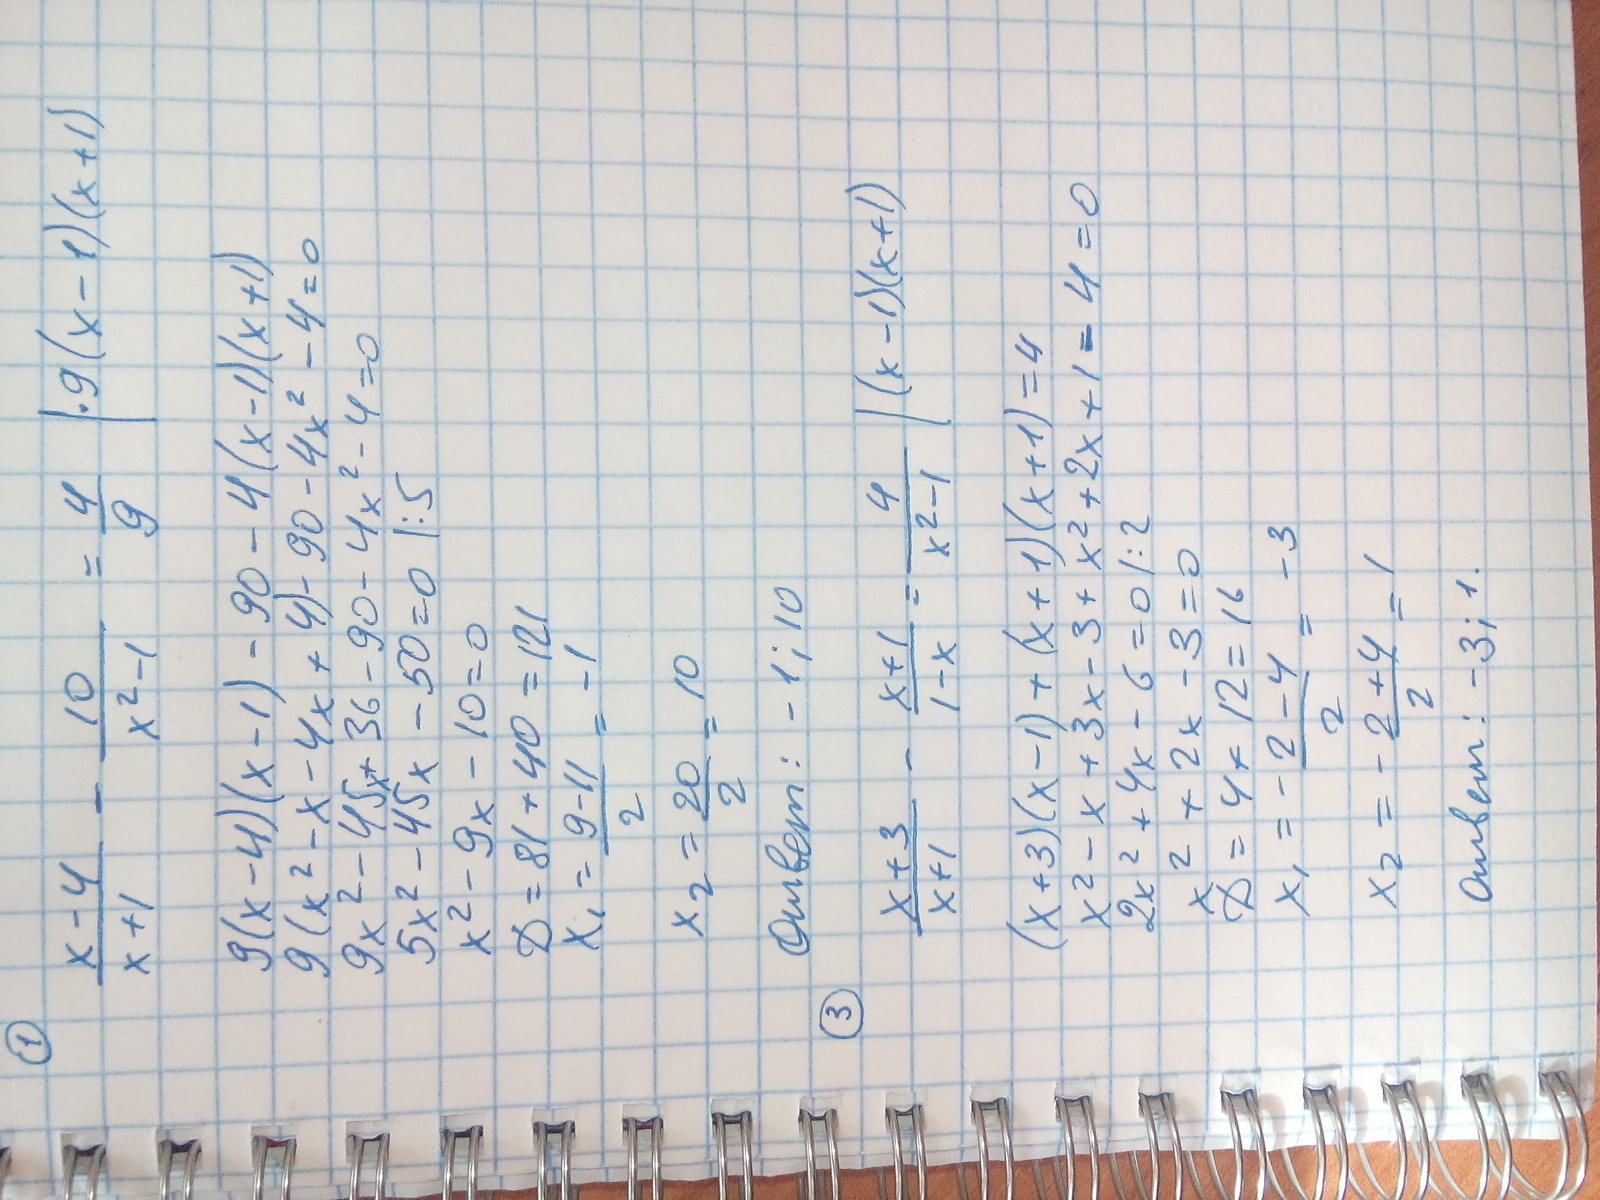 ①
x-4/x+1 - 10/x²-1 = 4/9 |·9(x-1)(x+1)
9(x-4)(x-1) - 90 - 4(x-1)(x+1)
9(x²-x-4x+4)-90-4x²-4=0
9x²-45x+36-90-4x²-4=0
5x²-45x-50=0 |:5
x²-9x-10=0
D=81+40=121
x₁=9-11/2=-1
x₂=20/2=10
Ответ: -1; 10
③
x+3/x+1 - x+1/1-x = 4/x²-1 |(x-1)(x+1)
(x+3)(x-1)+(x+1)(x+1)=4
x²-x+3x-3+x²+2x+1=4=0
2x²+4x-6=0 |:2
x²+2x-3=0
D=4+12=16
x₁=-2-4/2=-3
x₂=-2+4/2=1
Ответ: -3; 1.